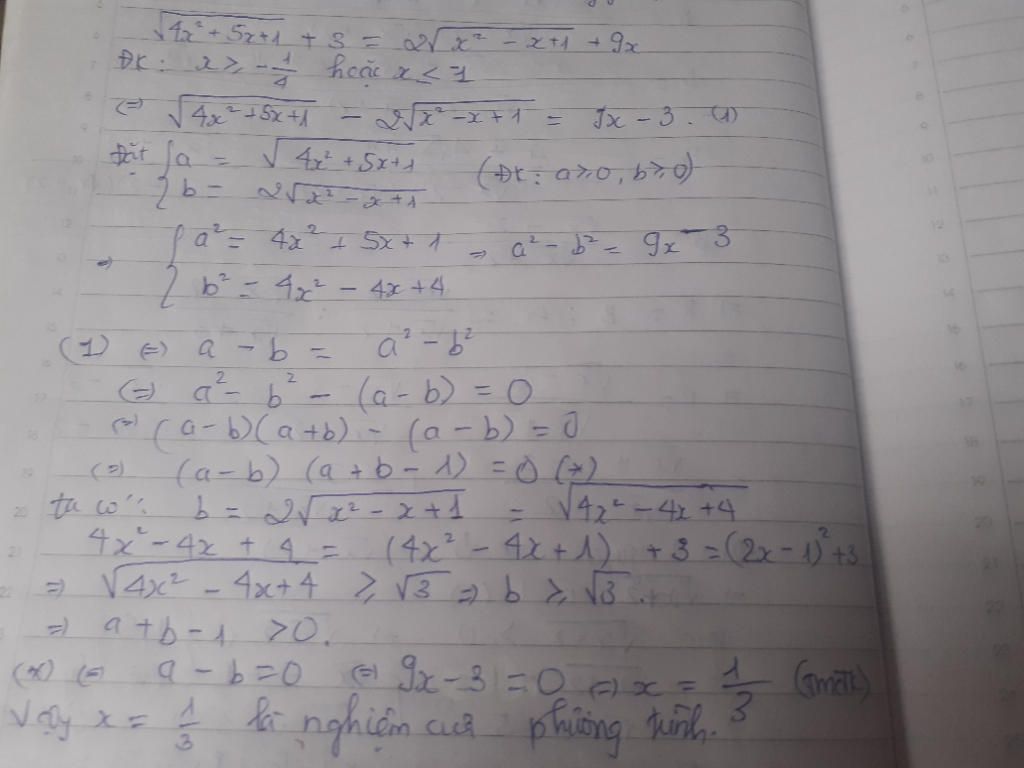 √(4x² + 5x + 1) + 3 = 2√(x² - x + 1) + 9x
ĐK: x ≥ -1/4 hoặc x ≤ -1
(=) √(4x² + 5x + 1) - 2√(x² - x + 1) = 9x - 3. (1)
Đặt { a = √(4x² + 5x + 1)
{ b = 2√(x² - x + 1) (ĐK: a ≥ 0, b ≥ 0)
=> { a² = 4x² + 5x + 1 => a² - b² = 9x - 3
{ b² = 4x² - 4x + 4
(1) (=) a - b = a² - b²
(=) a² - b² - (a - b) = 0
(=) (a - b)(a + b) - (a - b) = 0
(=) (a - b) (a + b - 1) = 0 (*)
ta có: b = 2√(x² - x + 1) = √(4x² - 4x + 4)
4x² - 4x + 4 = (4x² - 4x + 1) + 3 = (2x - 1)² + 3
=> √(4x² - 4x + 4) ≥ √3 => b ≥ √3.
=> a + b - 1 > 0.
(*) (=) a - b = 0 (=) 9x - 3 = 0 (=) x = 1/3 (tmđk)
Vậy x = 1/3 là nghiệm của phương trình.